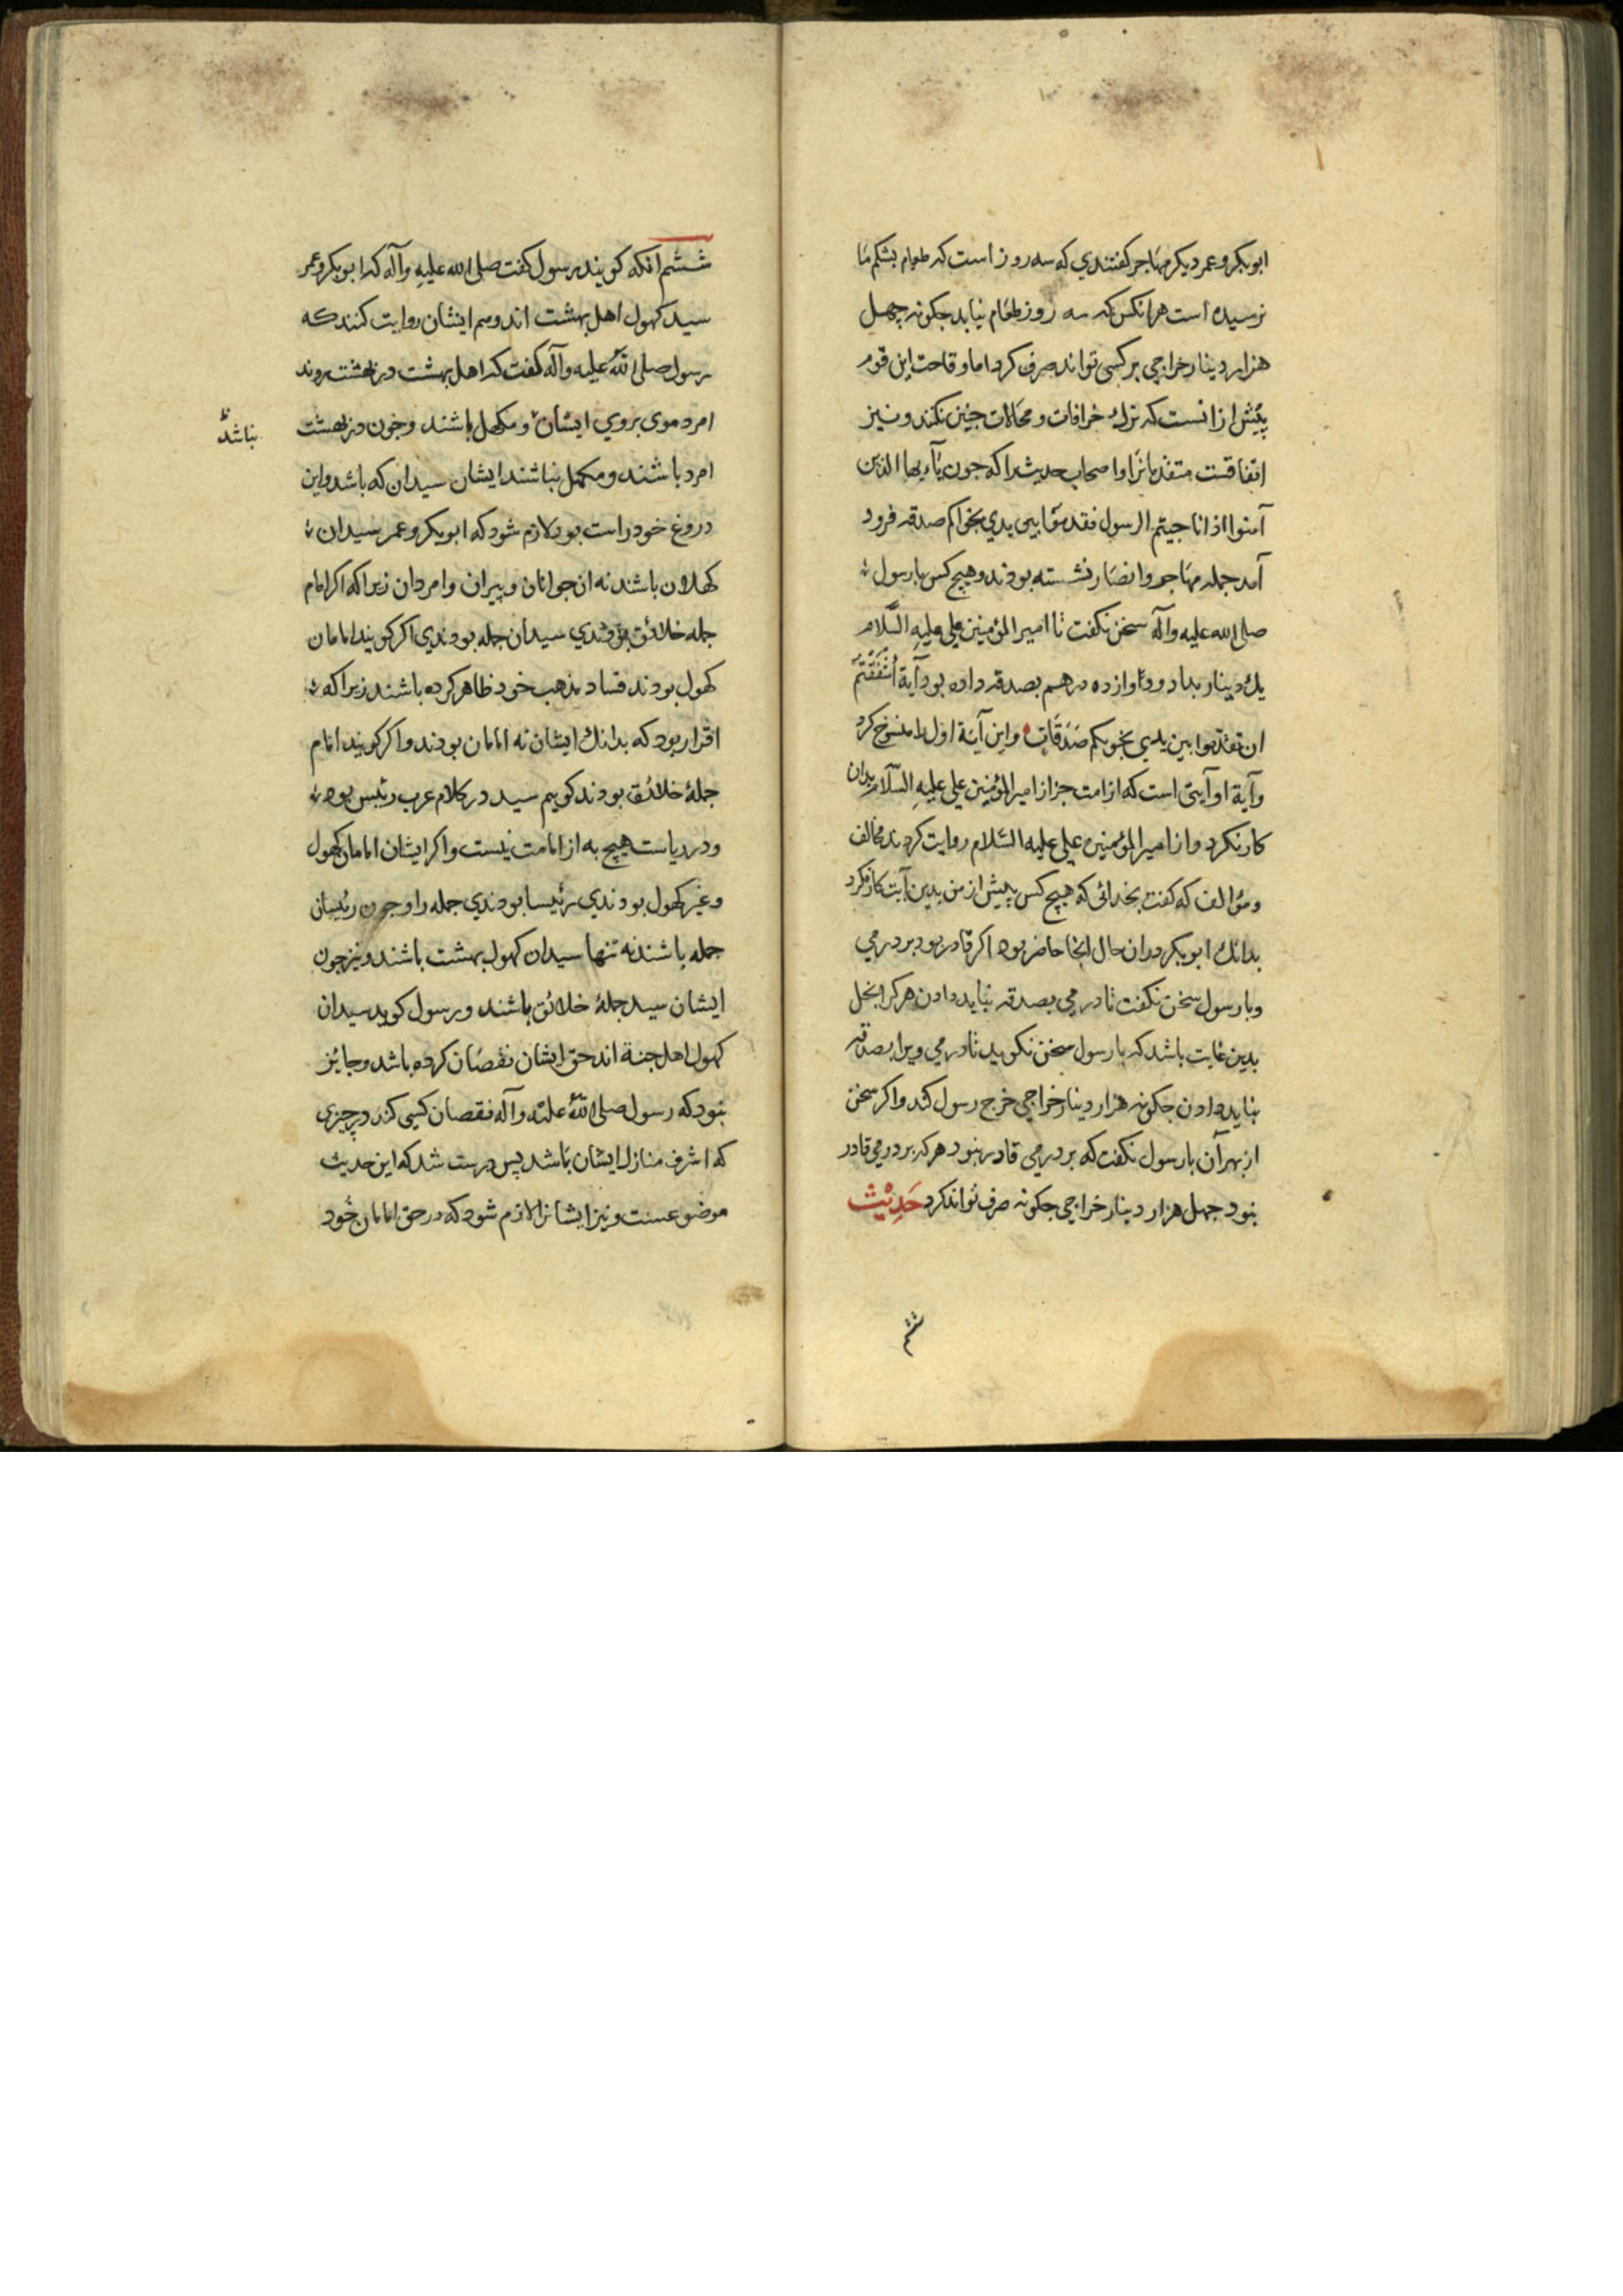 ابوبکر و عمر دیکر مهاجر کفتندي که سه روز است که طعام بشکم ما
نرسیده است هر انکس که سه روز طعام نیابد جکونه چهل
هزار دینار خراجي بر کسي تواند صرف کرد اما وقاحت این قوم
پیش از انست که ترك خرافات و محالات جنین نکند و نیز
اتفاقست متقدمانرا و اصحاب حدیث را که جون یا ایها الذین
آمنوا اذا ناجیتم الرسول فقدموا بین یدي نجواکم صدقه فرود
آمد جمله مهاجر و انصار نشسته بودند و هیچ کس با رسول
صلی الله علیه وآله سخن نکفت تا امیر المؤمنین علي علیه السلام
یك دینار بداد و دوازده درهم بصدقه داده بود آیة أشفقتم
ان تقدموا بین یدي نجویکم صدقات و این آیة اول را منسوخ کرد
وآیة او آیتی است که از امت جز از امیر المؤمنین علي علیه السلام بدان
کار نکرد و از امیر المؤمنین علي علیه السلام روایت کردند مخالف
و مؤالف که کفت بخدائی که هیچ کس پیش از من بدین آیت کار نکرد
بدانك ابوبکر دران حال انجا حاضر بود اکر قادر بود بر درمي
و با رسول سخن نکفت تا درمي بصدقه نباید دادن هر کرا بخل
بدین غایت باشد که با رسول سخن نکوید تا درمي ویرا بصدقه
نباید دادن جکونه هزار دینار خراجي خرج رسول کند و اکر سخن
از بهر آن با رسول نکفت که بر درمي قادر نبود هر که بر درمي قادر
نبود جهل هزار دینار خراجي جکونه صرف تواند کرد حدیث
ششم
ششم انکه کویند رسول کفت صلی الله علیه وآله که ابوبکر و عمر
سید کهول اهل بهشت اند و هم ایشان روایت کنند که
رسول صلی الله علیه وآله کفت که اهل بهشت در بهشت روند
امرد موی بروي ایشان و مکهل باشند و جون در بهشت
نباشد
امرد باشند و مکهل نباشند ایشان سیدان که باشد و این
دروغ خود راست بود لازم شود که ابوبکر و عمر سیدان
کهلان باشند نه ان جوانان و پیران و امردان زیرا که اکر امام
جمله خلائق بودندي سیدان جمله بودندي اکر کویند امامان
کهول بودند فساد مذهب خود ظاهر کرده باشند زیرا که
اقرار بود که بدانك ایشان نه امامان بودند و اکر کویند امام
جملۀ خلائق بودند کویم سید در کلام عرب رئیس بود
و در ریاست هیچ به از امامت نیست و اکر ایشان امامان کهول
و غیر کهول بودندي رئیسا بودندي جمله را و جون رئیسان
جمله باشند نه تنها سیدان کهول بهشت باشند و نیز جون
ایشان سید جملۀ خلائق باشند و رسول کوید سیدان
کهول اهل جنة اند حق ایشان نقصان کرده باشد و جایز
نبود که رسول صلی الله علیه وآله نقصان کسي کند در چیزی
که اشرف منازل ایشان باشد پس درست شد که این حدیث
موضوعست و نیز ایشانرا لازم شود که در حق امامان خود